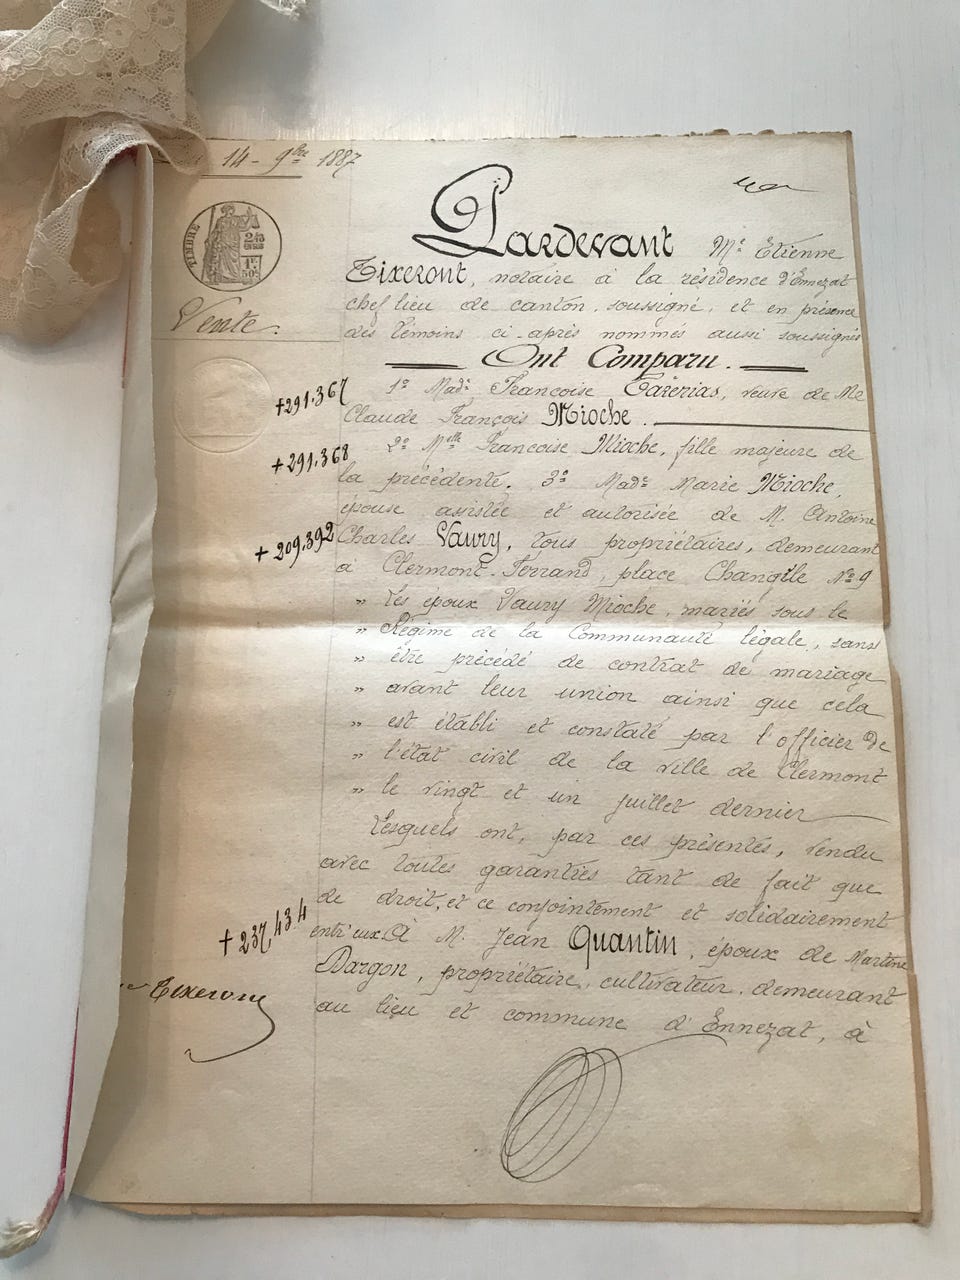 14 - 9bre 1887
TIMBRE
2/10
EN SUS
1F.
50c
Vente.
Pardevant Me Etienne
Tixeront, notaire à la résidence d'Ennezat
chef lieu de canton, soussigné, et en présence
des témoins ci-après nommés aussi soussignés
Ont Comparu.
+291.367
1o Made Françoise Tarérias, veuve de Me
Claude François Mioche.
+291.368
2o Melle Francoise Mioche, fille majeure de
la précédente. 3o Made Marie Mioche,
épouse assistée et autorisée de M. Antoine
+209.392
Charles Vaury, tous propriétaires, demeurant
à Clermont-Ferrand, place No 9
" Les époux Vaury Mioche, mariés sous le
" Régime de la Communauté légale, sans
" être précédé de contrat de mariage
" avant leur union ainsi que cela
" est établi et constaté par l'officier de
" l'état civil de la ville de Clermont
" le vingt et un juillet dernier
Lesquels ont, par ces présentes, vendu
avec toutes garanties tant de fait que
de droit, et ce conjointement et solidairement
+237,434
entr'eux. À M. Jean Quantin, époux de Martine
Dargon, propriétaire, cultivateur, demeurant
Tixeront
au lieu et commune d'Ennezat, à